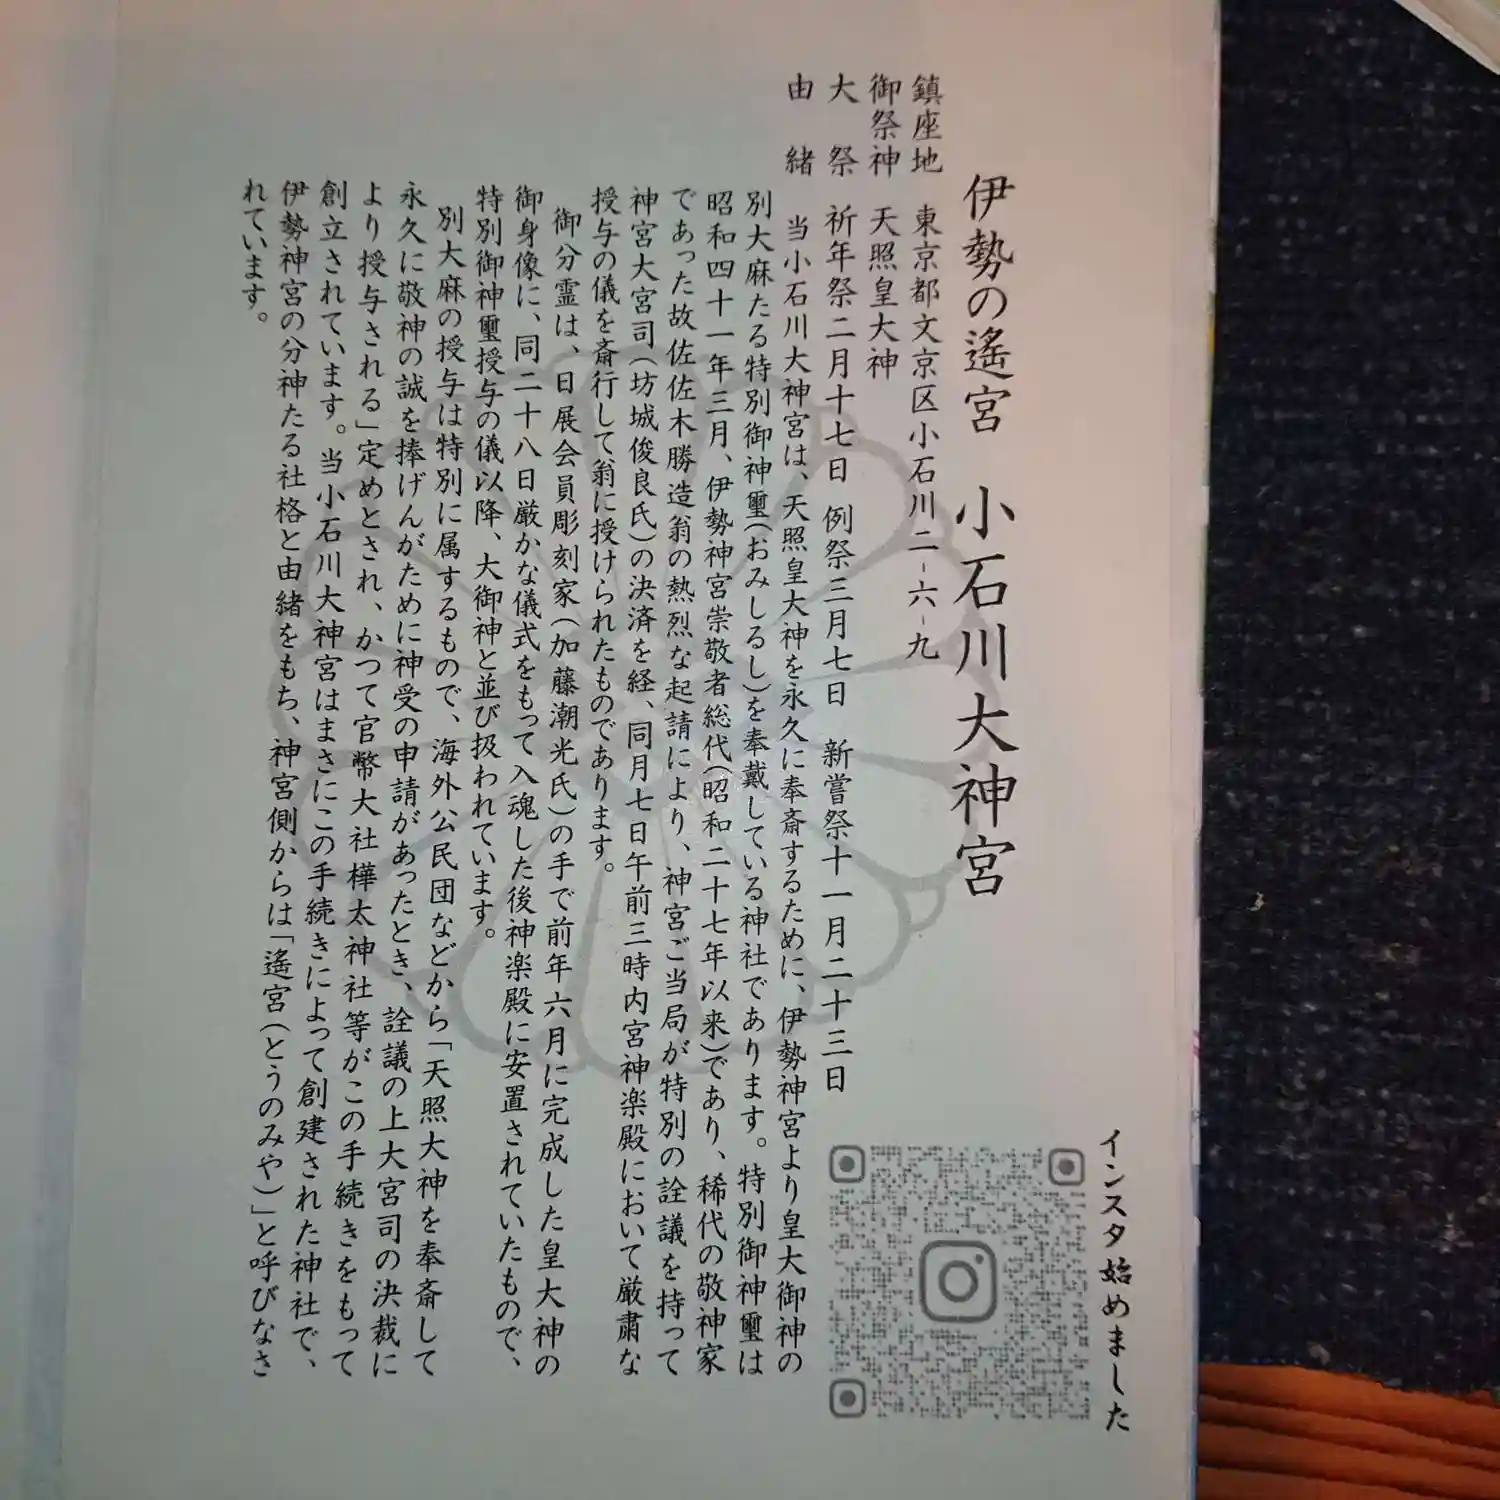 インスタ始めました
伊勢の遙宮 小石川大神宮
鎮座地 東京都文京区小石川二-六-九
御祭神 天照皇大神
大祭 祈年祭二月十七日 例祭三月七日 新嘗祭十一月二十三日
由緒 当小石川大神宮は、天照皇大神を永久に奉斎するために、伊勢神宮より皇大御神の
別大麻たる特別御神璽(おみしるし)を奉戴している神社であります。特別御神璽は
昭和四十一年三月、伊勢神宮崇敬者総代(昭和二十七年以来)であり、稀代の敬神家
であった故佐佐木勝造翁の熱烈な起請により、神宮ご当局が特別の詮議を持って
神宮大宮司(坊城俊良氏)の決済を経、同月七日午前三時内宮神楽殿において厳粛な
授与の儀を斎行して翁に授けられたものであります。
御分霊は、日展会員彫刻家(加藤潮光氏)の手で前年六月に完成した皇大神の
御身像に、同二十八日厳かな儀式をもって入魂した後神楽殿に安置されていたもので、
特別御神璽授与の儀以降、大御神と並び扱われています。
別大麻の授与は特別に属するもので、海外公民団などから「天照大神を奉斎して
永久に敬神の誠を捧げんがために神受の申請があったとき、詮議の上大宮司の決裁に
より授与される」定めとされ、かつて官幣大社樺太神社等がこの手続きをもって
創立されています。当小石川大神宮はまさにこの手続きによって創建された神社で、
伊勢神宮の分神たる社格と由緒をもち、神宮側からは「遙宮(とうのみや)」と呼びなさ
れています。